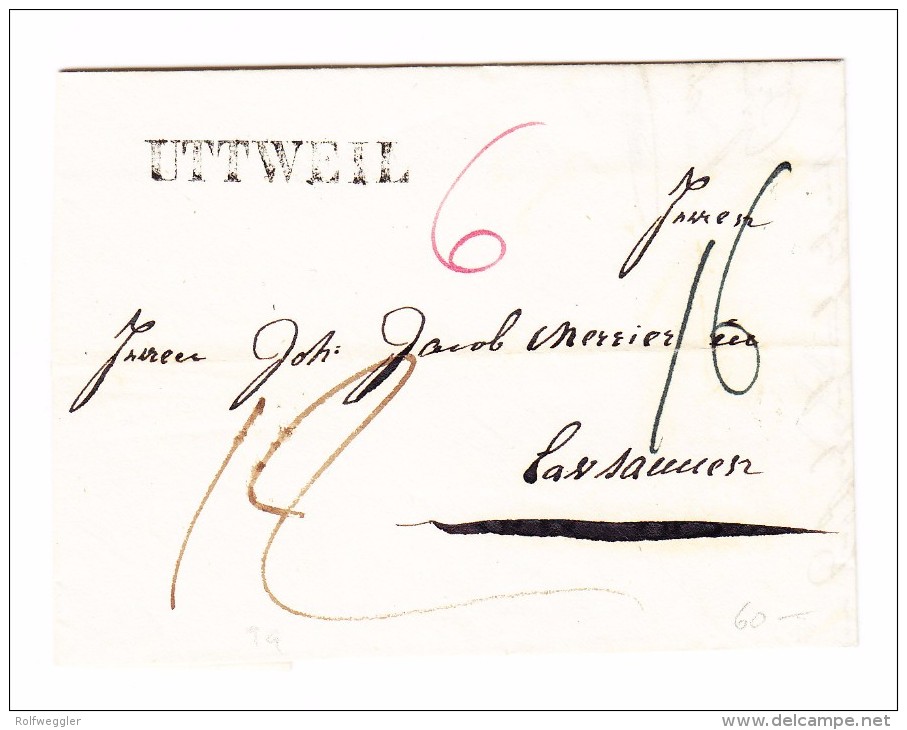 UTTWEIL
6
Herren
16
Herren Joh: Jacob Mercier in
Lausannen
18
60 —
Rolfweggler
www.delcampe.net